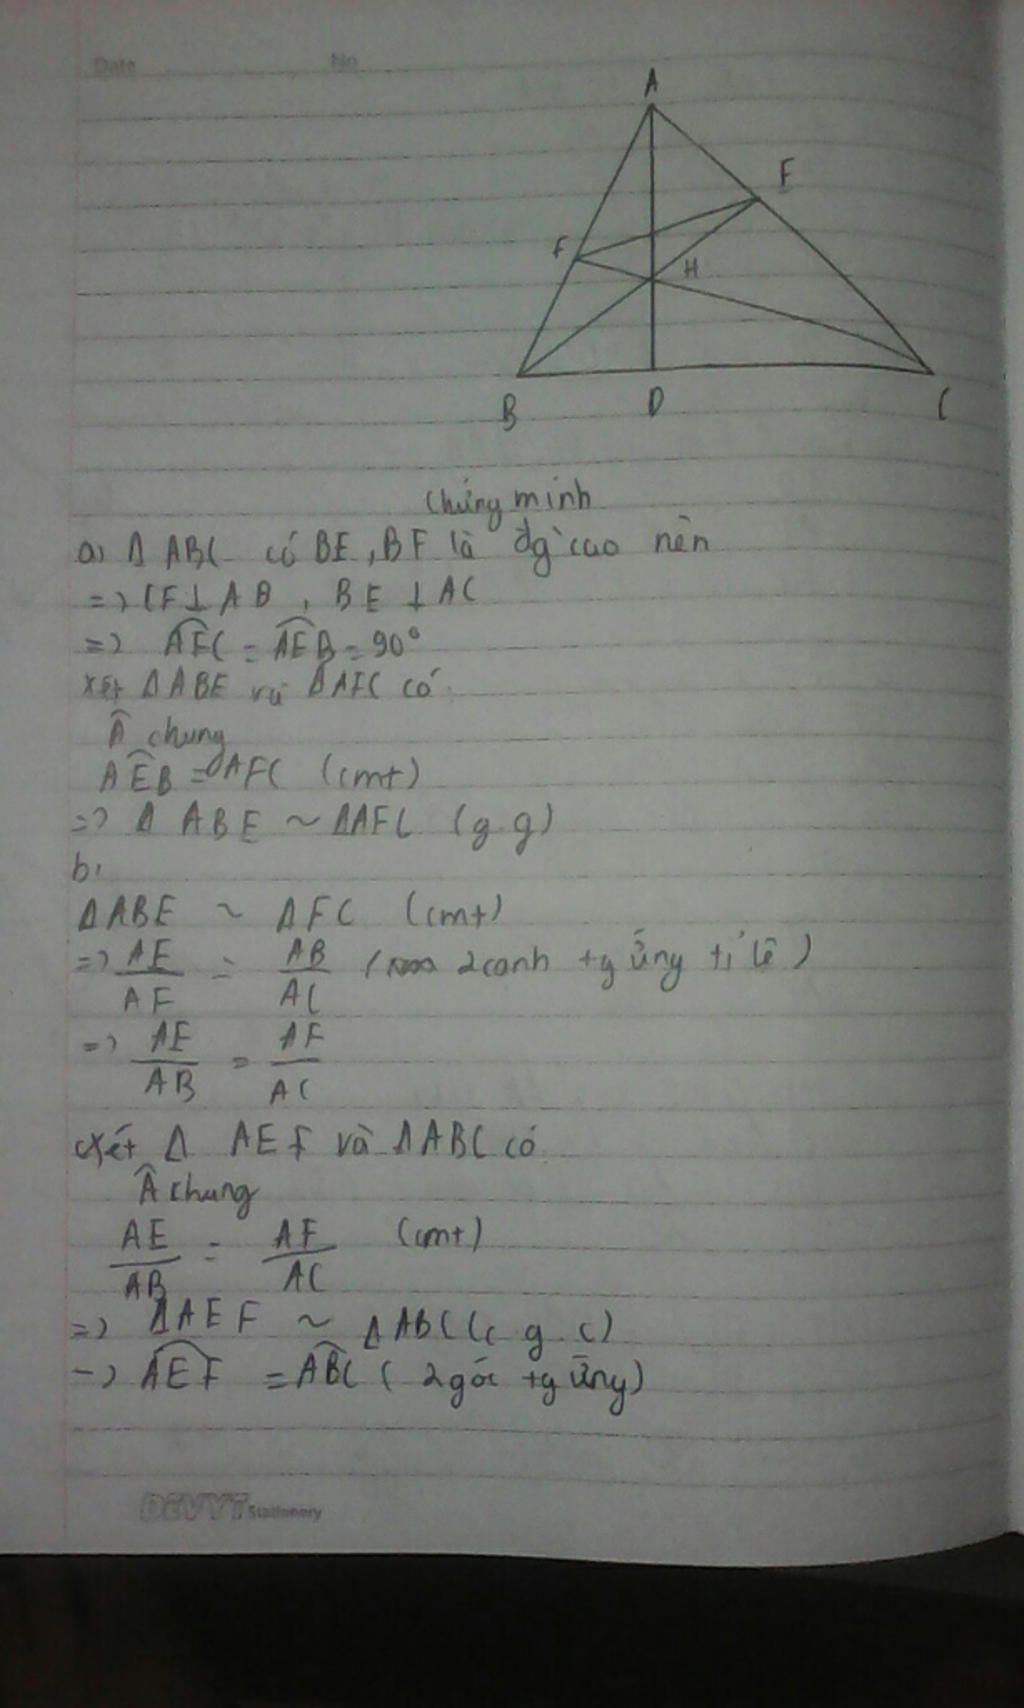 Date No
A
E
F
H
B D C
Chứng minh
a) Δ ABC có BE, BF là đg cao nên
=> CF ⊥ AB , BE ⊥ AC
=> AFC = AEB = 90°
Xét Δ ABE và Δ AFC có
Â chung
AEB = AFC (cmt)
=> Δ ABE ~ Δ AFC (g.g)
b,
Δ ABE ~ Δ FC (cmt)
=> AE/AF = AB/AC ( 2 cạnh tg ứng tỉ lệ )
=> AE/AB = AF/AC
Xét Δ AEF và Δ ABC có
Â chung
AE/AB = AF/AC (cmt)
=> Δ AEF ~ Δ ABC (c g c)
-> AEF = ABC ( 2 góc tg ứng)
DEVYT Stationery